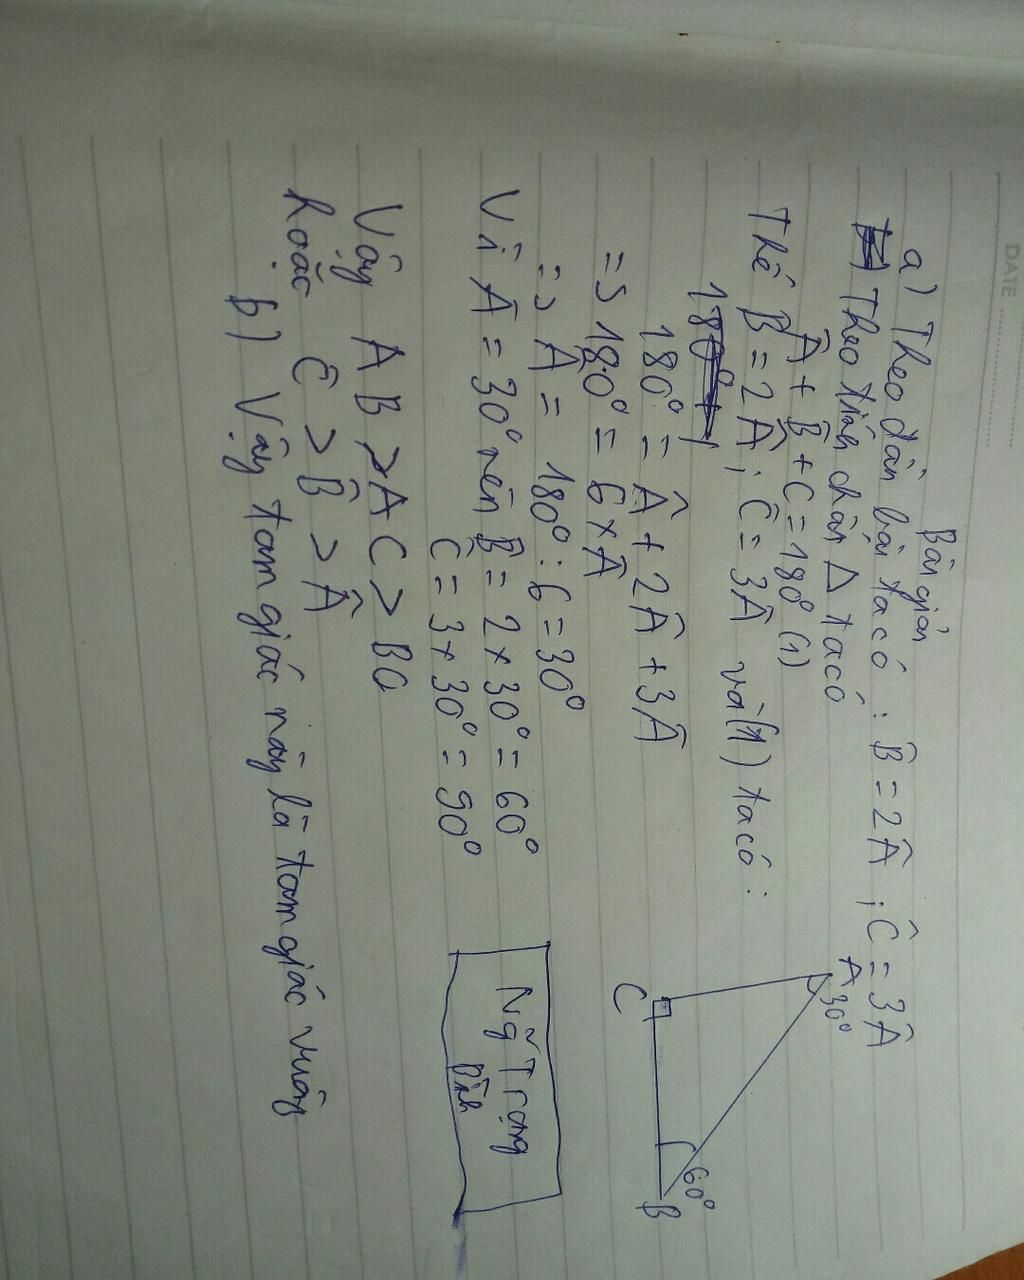 DATE
Bài giải
a) Theo đần bài ta có : B̂ = 2Â ; Ĉ = 3Â
Theo tính chất Δ ta có
Â + B̂ + C = 180° (1)
Thế B̂ = 2Â ; Ĉ = 3Â và (1) ta có :
180° = Â + 2Â + 3Â
=> 180° = 6 × Â
=> Â = 180° : 6 = 30°
Vì Â = 30° nên B̂ = 2 × 30° = 60°
Ĉ = 3 × 30° = 90°
Vậy AB > AC > BC
hoặc Ĉ > B̂ > Â
b) Vậy tam giác này là tam giác vuông
A
30°
C
60°
B
Ng Trọng